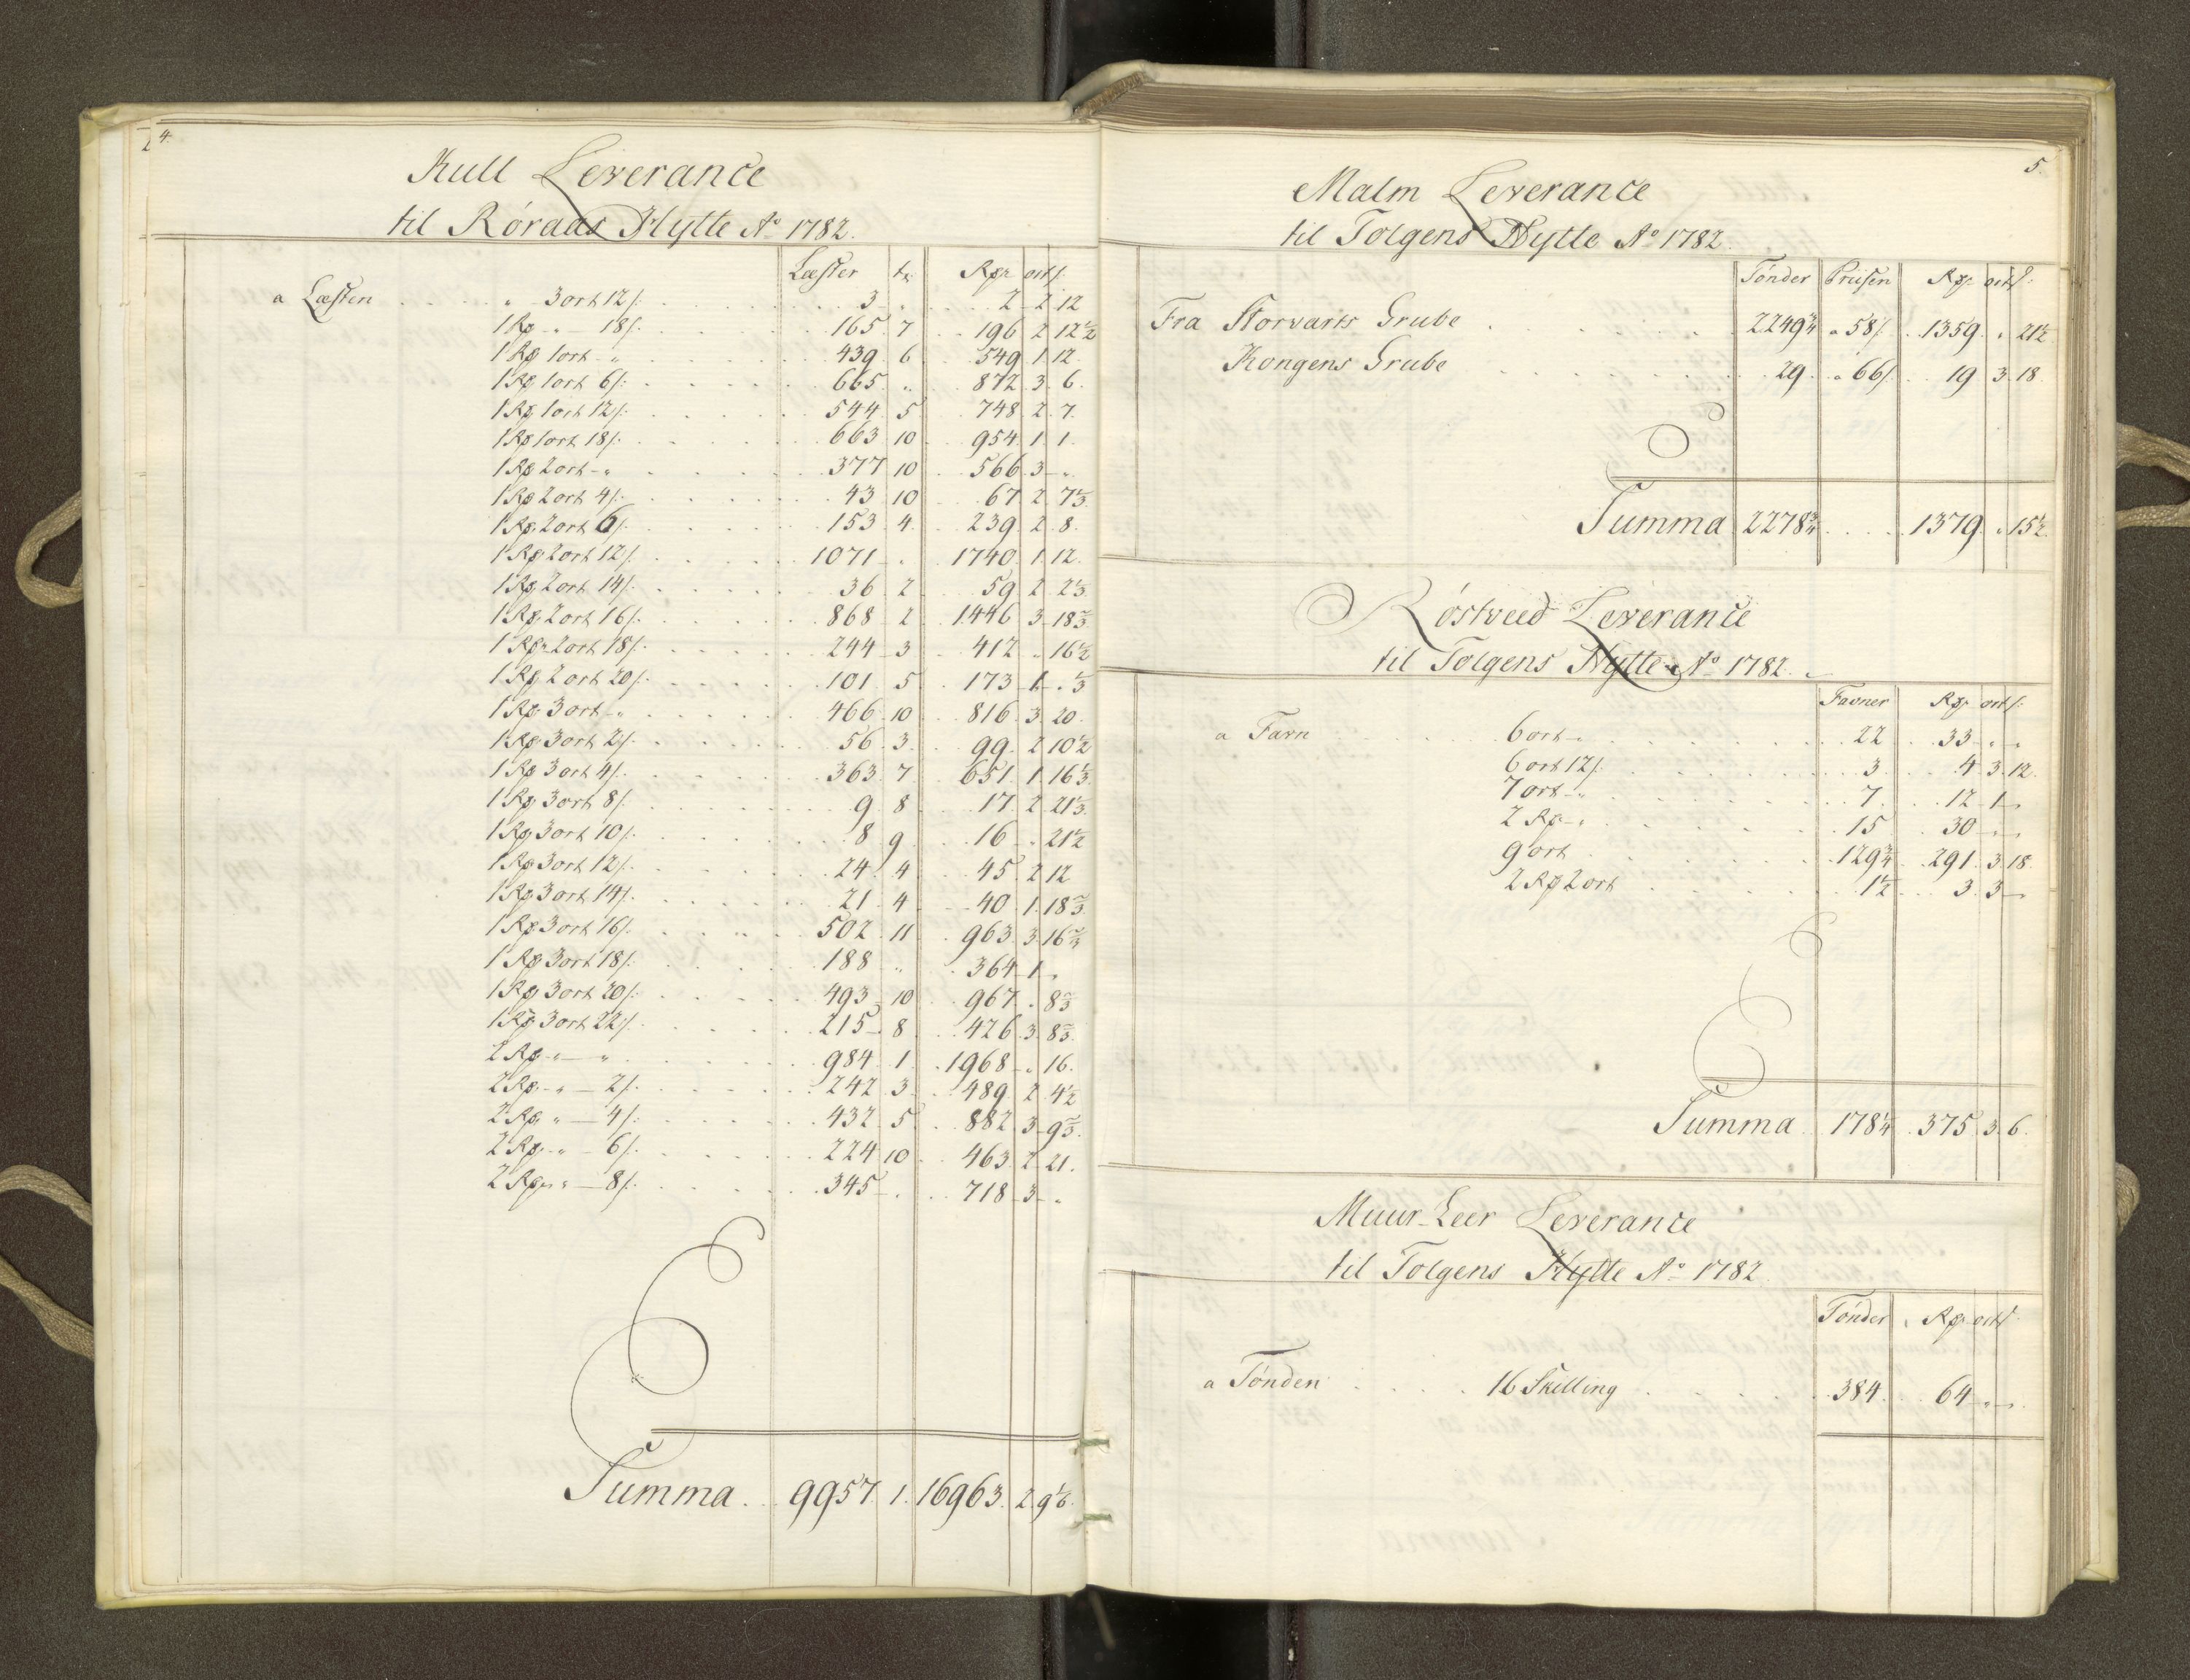 4.
Kull Leverance
til Røraas Hytte Aº 1782.
Læster tr Rdr ort s:
a Læsten " 3 ort 12 s: 3 " 2 2 12
1 Rd " 18 s: 165 7 196 2 12 1/2
1 Rd 1 ort " 439 6 549 1 12
1 Rd 1 ort 6 s: 665 " 872 3 6
1 Rd 1 ort 12 s: 544 5 748 2 7
1 Rd 1 ort 18 s: 663 10 954 1 1
1 Rd 2 ort " 377 10 566 3 "
1 Rd 2 ort 4 s: 43 10 67 2 7 1/3
1 Rd 2 ort 6 s: 153 4 239 2 8
1 Rd 2 ort 12 s: 1071 " 1740 1 12
1 Rd 2 ort 14 s: 36 2 59 2 2 1/3
1 Rd 2 ort 16 s: 868 2 1446 3 18 2/3
1 Rd 2 ort 18 s: 244 3 412 " 16 1/2
1 Rd 2 ort 20 s: 101 5 173 1 " 1/3
1 Rd 3 ort " 466 10 816 3 20
1 Rd 3 ort 2 s: 56 3 99 2 10 1/2
1 Rd 3 ort 4 s: 363 7 651 1 16 1/3
1 Rd 3 ort 8 s: 9 8 17 2 21 1/3
1 Rd 3 ort 10 s: 8 9 16 " 21 1/2
1 Rd 3 ort 12 s: 24 4 45 2 12
1 Rd 3 ort 14 s: 21 4 40 1 18 2/3
1 Rd 3 ort 16 s: 502 11 963 3 16 2/3
1 Rd 3 ort 18 s: 188 " 364 1 "
1 Rd 3 ort 20 s: 493 10 967 " 8 2/3
1 Rd 3 ort 22 s: 215 8 426 3 8 2/3
2 Rd " " 984 1 1968 " 16
2 Rd " 2 s: 242 3 489 2 4 1/2
2 Rd " 4 s: 432 5 882 3 9 2/3
2 Rd " 6 s: 224 10 463 2 21
2 Rd " 8 s: 345 " 718 3 "
Summa 9957 1 16963 2 9 1/6
5.
Malm Leverance
til Tolgens Hytte Aº 1782.
Tønder Priisen Rdr ort s:
Fra Storvarts Grube 2249 3/4 a 58 s 1359 " 21 1/2
Kongens Grube 29 a 66 s 19 3 18
Summa 2278 3/4 1379 " 15 1/2
Røstveed Leverance
til Tolgens Hytte Aº 1782.
Favner Rdr ort s:
a Favn 6 ort " 22 33 " "
6 ort 12 s: 3 4 3 12
7 ort " 7 12 1 "
2 Rd " 15 30 " "
9 ort 129 3/4 291 3 18
2 Rd 2 ort 1 1/2 3 3 "
Summa 178 1/4 375 3 6
Muur-Leer Leverance
til Tolgens Hytte Aº 1782
Tønder Rdr ort s
a Tønden 16 Skilling 384 64 " "